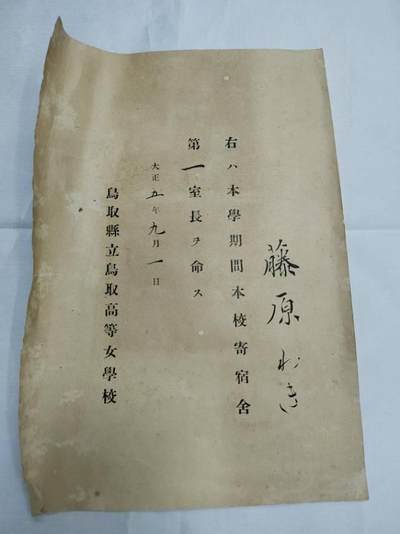 藤原 き
右ハ本學期間本校寄宿舍
第一室長ヲ命ス
大正五年九月一日
鳥取縣立鳥取高等女學校